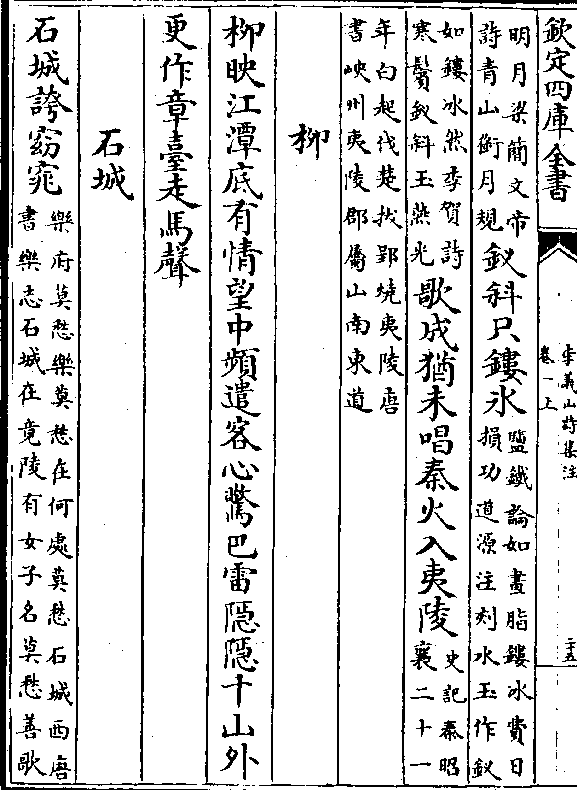 欽定四庫全書
李義山詩集注
卷一上
二十五
明月梁簡文帝
詩青山銜月規
釵斜只鏤冰
鹽鐵論如畫脂鏤冰費日
損功道源注刻水玉作釵
如鏤冰然李賀詩
寒鬢釵斜玉燕光
歌成猶未唱秦火入夷陵
史記秦昭
襄二十一
年白起伐楚拔郢燒夷陵唐
書峽州夷陵郡屬山南東道
柳
柳映江潭底有情望中頻遣客心驚巴雷隱隱千山外
更作章臺走馬聲
石城
石城誇窈窕
樂府莫愁樂莫愁在何處莫愁石城西唐
書樂志石城在竟陵有女子名莫愁善歌